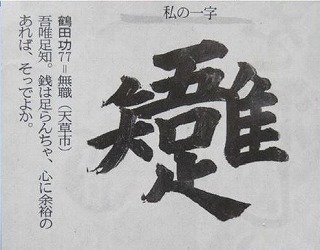 私の一字
吾唯足知
鶴田功77=無職(天草市)
吾唯足知。銭は足らんちゃ、心に余裕の
あれば、そっでよか。